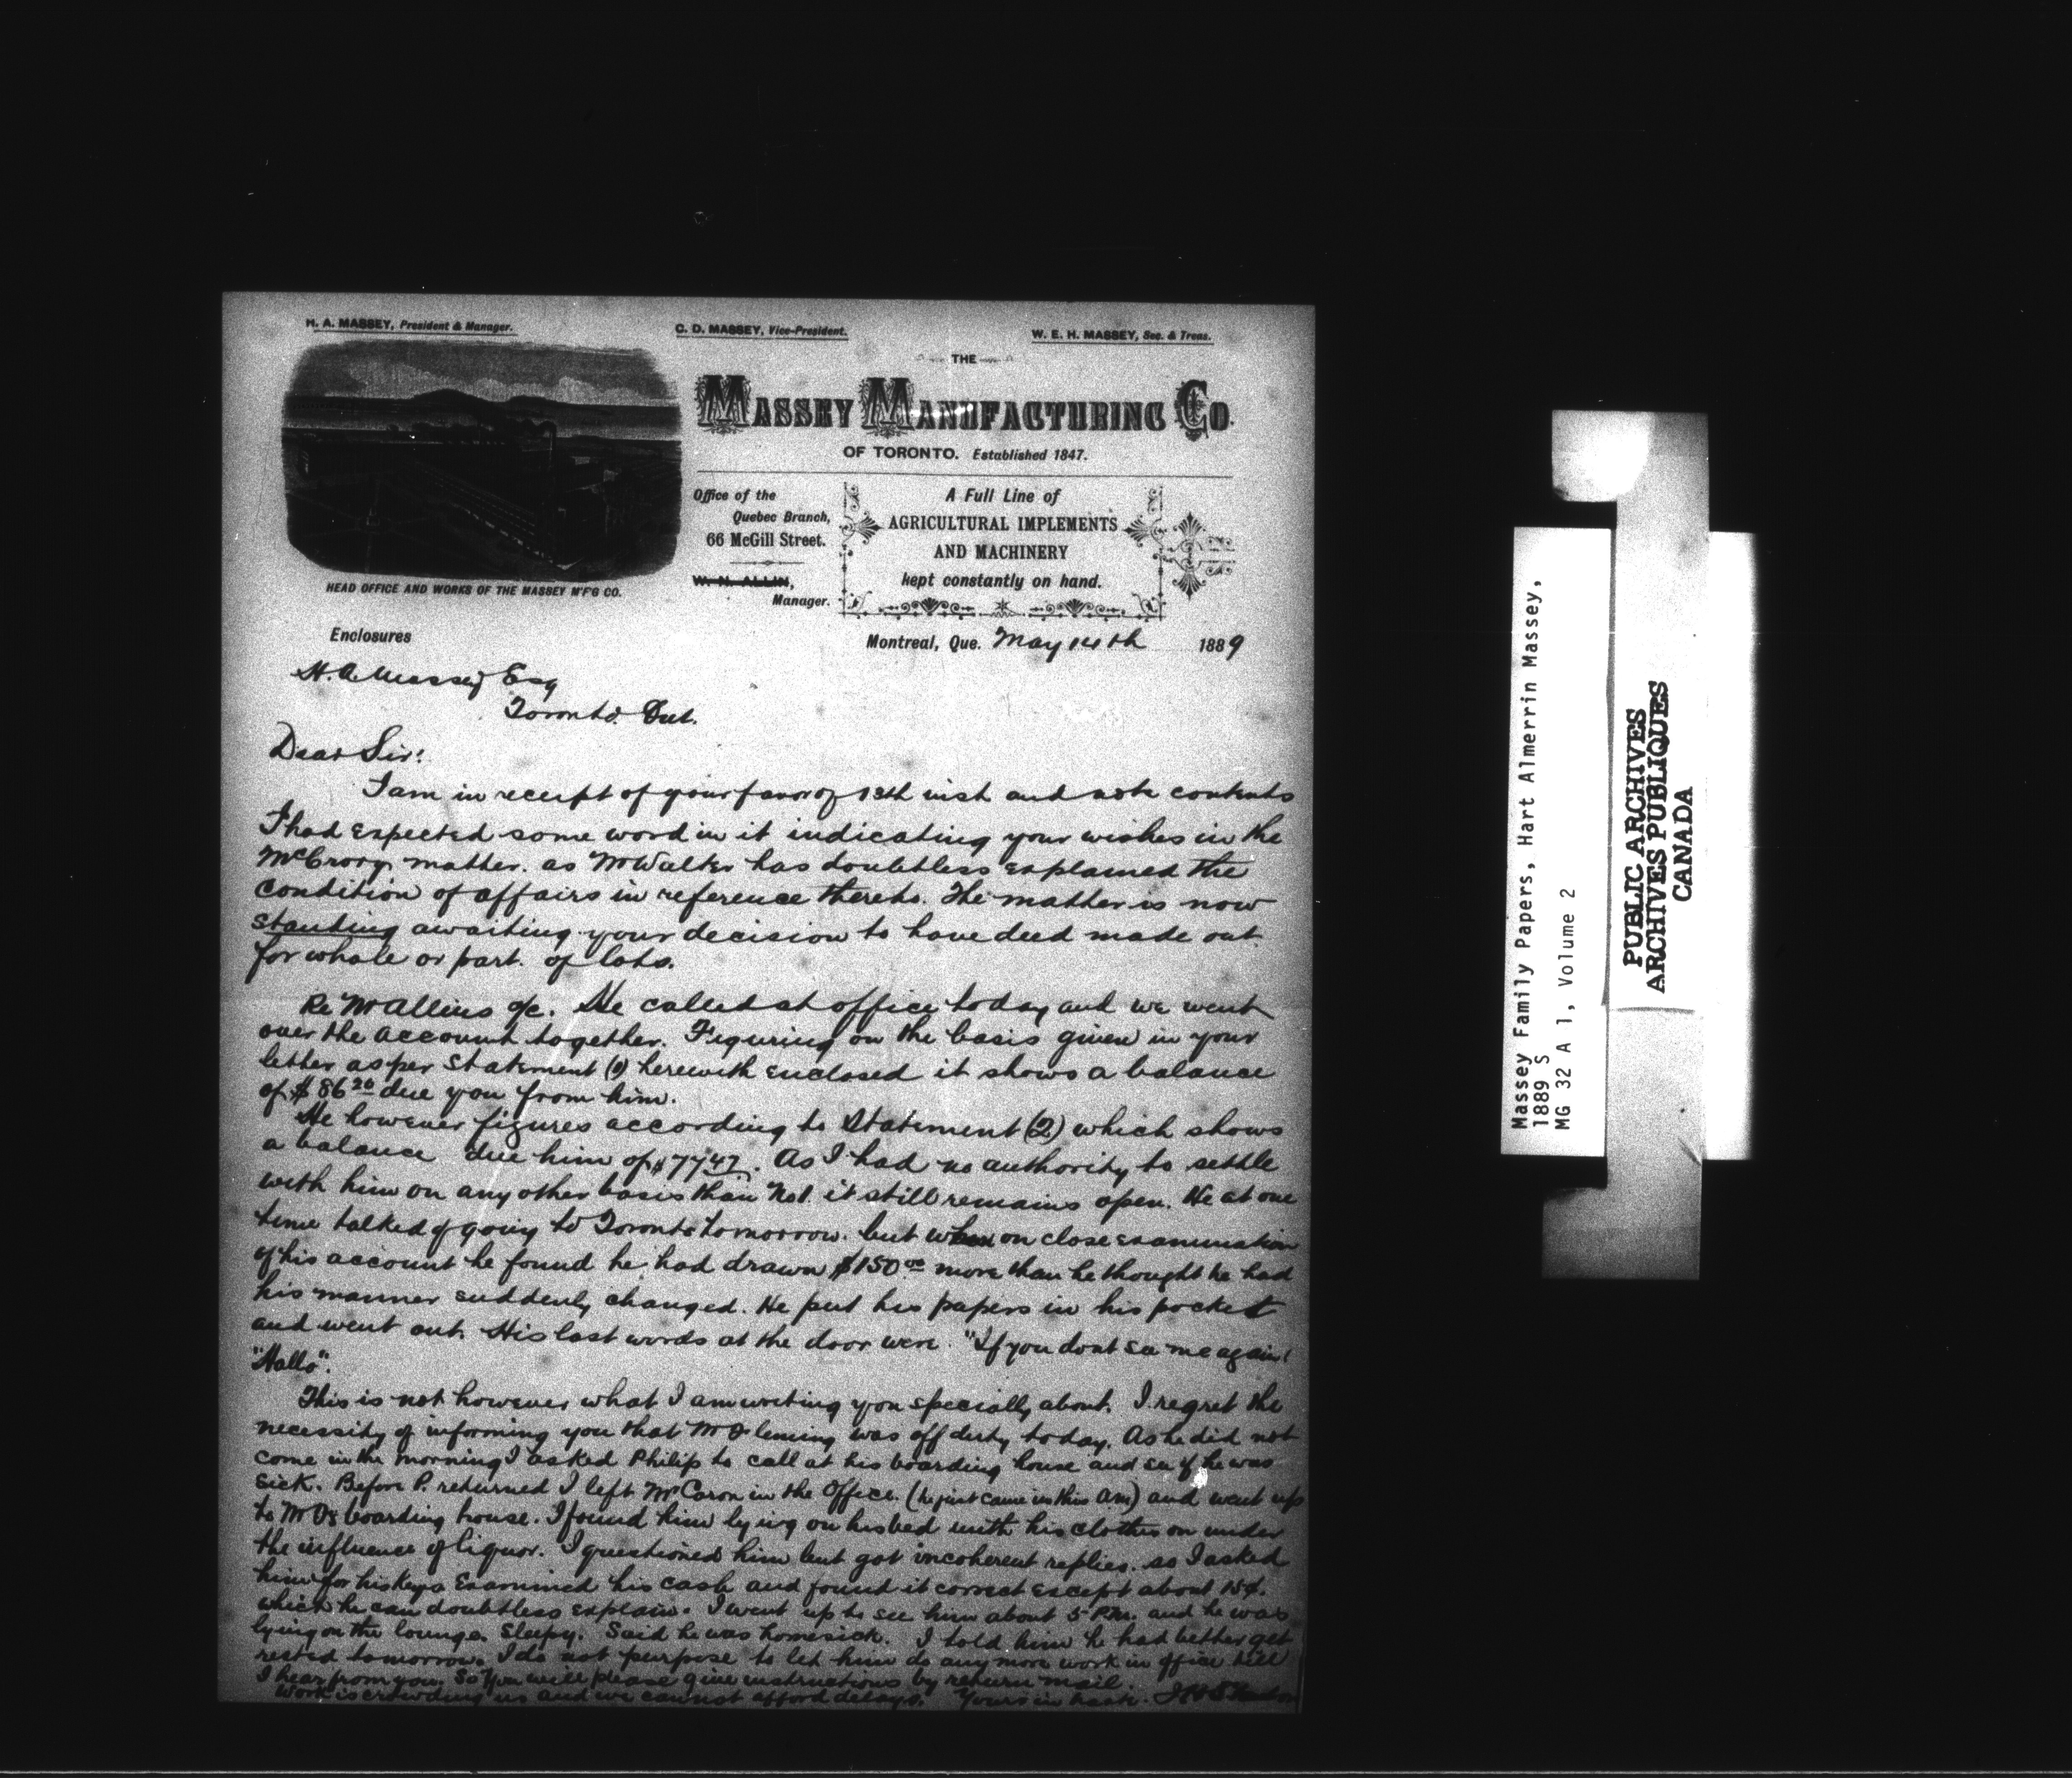 H. A. MASSEY, President & Manager.
C. D. MASSEY, Vice-President.
W. E. H. MASSEY, Sec. & Treas.
THE
MASSEY MANUFACTURING CO.
OF TORONTO. Established 1847.
Office of the
Quebec Branch,
66 McGill Street.
W. N. ALLIN,
Manager.
A Full Line of
AGRICULTURAL IMPLEMENTS
AND MACHINERY
kept constantly on hand.
HEAD OFFICE AND WORKS OF THE MASSEY M'F'G CO.
Enclosures
Montreal, Que. May 14th 1889
H. A. Massey Esq
Toronto. Ont.
Dear Sir:
I am in receipt of your favor of 13th inst and note contents
I had expected some word in it indicating your wishes in the
McCrory matter. as Mr Walter has doubtless explained the
condition of affairs in reference thereto. The matter is now
standing awaiting your decision to have deed made out
for whole or part. of lots.
Re Mr Allins a/c. He called at office today and we went
over the account together. Figuring on the basis given in your
letter as per Statement (1) herewith enclosed it shows a balance
of $86 20 due you from him.
He however figures according to Statement (2) which shows
a balance due him of $77 47. As I had no authority to settle
with him on any other basis than No 1. it still remains open. He at one
time talked of going to Toronto tomorrow. but when on close examination
of his account he found he had drawn $150 00 more than he thought he had
his manner suddenly changed. He put his papers in his pocket
and went out. His last words at the door were. "If you dont see me again
"Hallo".
This is not however what I am writing you specially about. I regret the
necessity of informing you that Mr Fleming was off duty today. As he did not
come in the morning I asked Philip to call at his boarding house and see if he was
sick. Before P. returned I left Mr Caron in the Office. (he just came in this am) and went up
to Mr Fs boarding house. I found him lying on his bed with his clothes on under
the influence of liquor. I questioned him but got incoherent replies. so I asked
him for his keys examined his cash and found it correct except about 15¢.
which he can doubtless explain. I went up to see him about 5 P.M. and he was
lying on the lounge. Sleepy. Said he was homesick. I told him he had better get
rested tomorrow. I do not purpose to let him do any more work in office till
I hear from you. So you will please give instructions by return mail
Work is crowding us and we cannot afford delays. Yours in haste.
Massey Family Papers, Hart Almerrin Massey,
1889 S
MG 32 A 1, Volume 2
PUBLIC ARCHIVES
ARCHIVES PUBLIQUES
CANADA